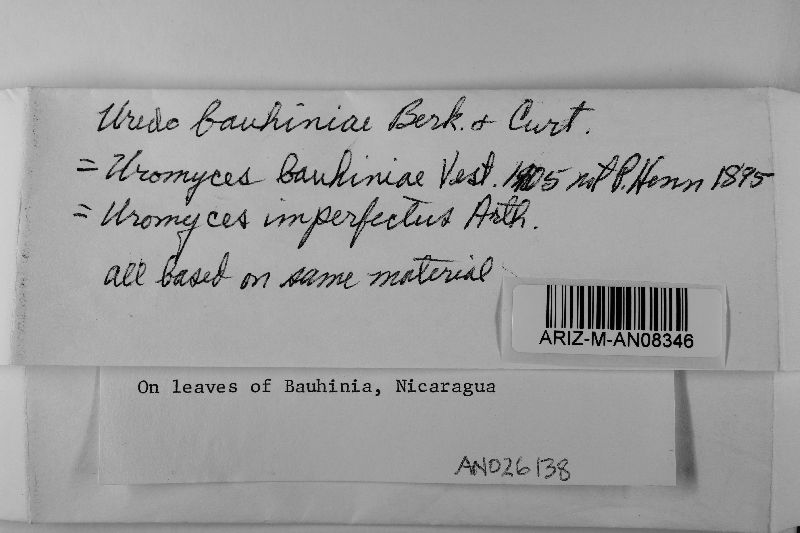 Uredo bauhiniae Berk. & Curt.
= Uromyces bauhiniae Vest. 1905 not P. Henn 1895
= Uromyces imperfectus Arth.
all based on same material
ARIZ-M-AN08346
On leaves of Bauhinia, Nicaragua
AN026138